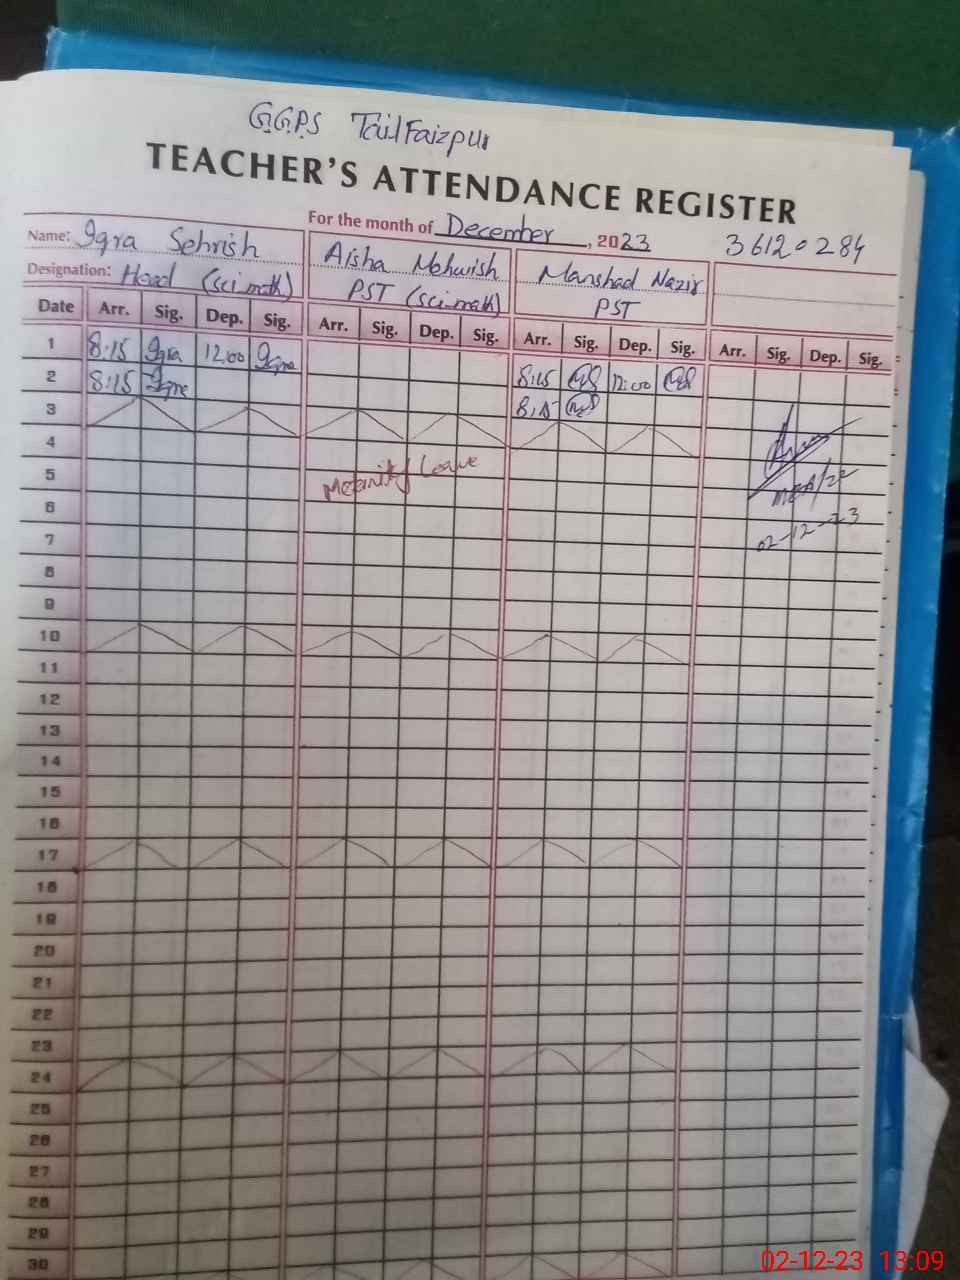 G.G.P.S Tail Faizpur
TEACHER'S ATTENDANCE REGISTER
For the month of December, 2023
36120284
Name: Iqra Sehrish
Aisha Mehwish
Manshad Nazir
Designation: Head (sci math)
PST (sci math)
PST
Date Arr. Sig. Dep. Sig. Arr. Sig. Dep. Sig. Arr. Sig. Dep. Sig. Arr. Sig. Dep. Sig.
1 8:15 Iqra 12:00 Iqra 8:15 12:00
2 8:15 Iqra 8:15
3
4
5 Meternity Leave
6
7 02-12-23
8
9
10
11
12
13
14
15
16
17
18
19
20
21
22
23
24
25
26
27
28
29
30
02-12-23 13:09